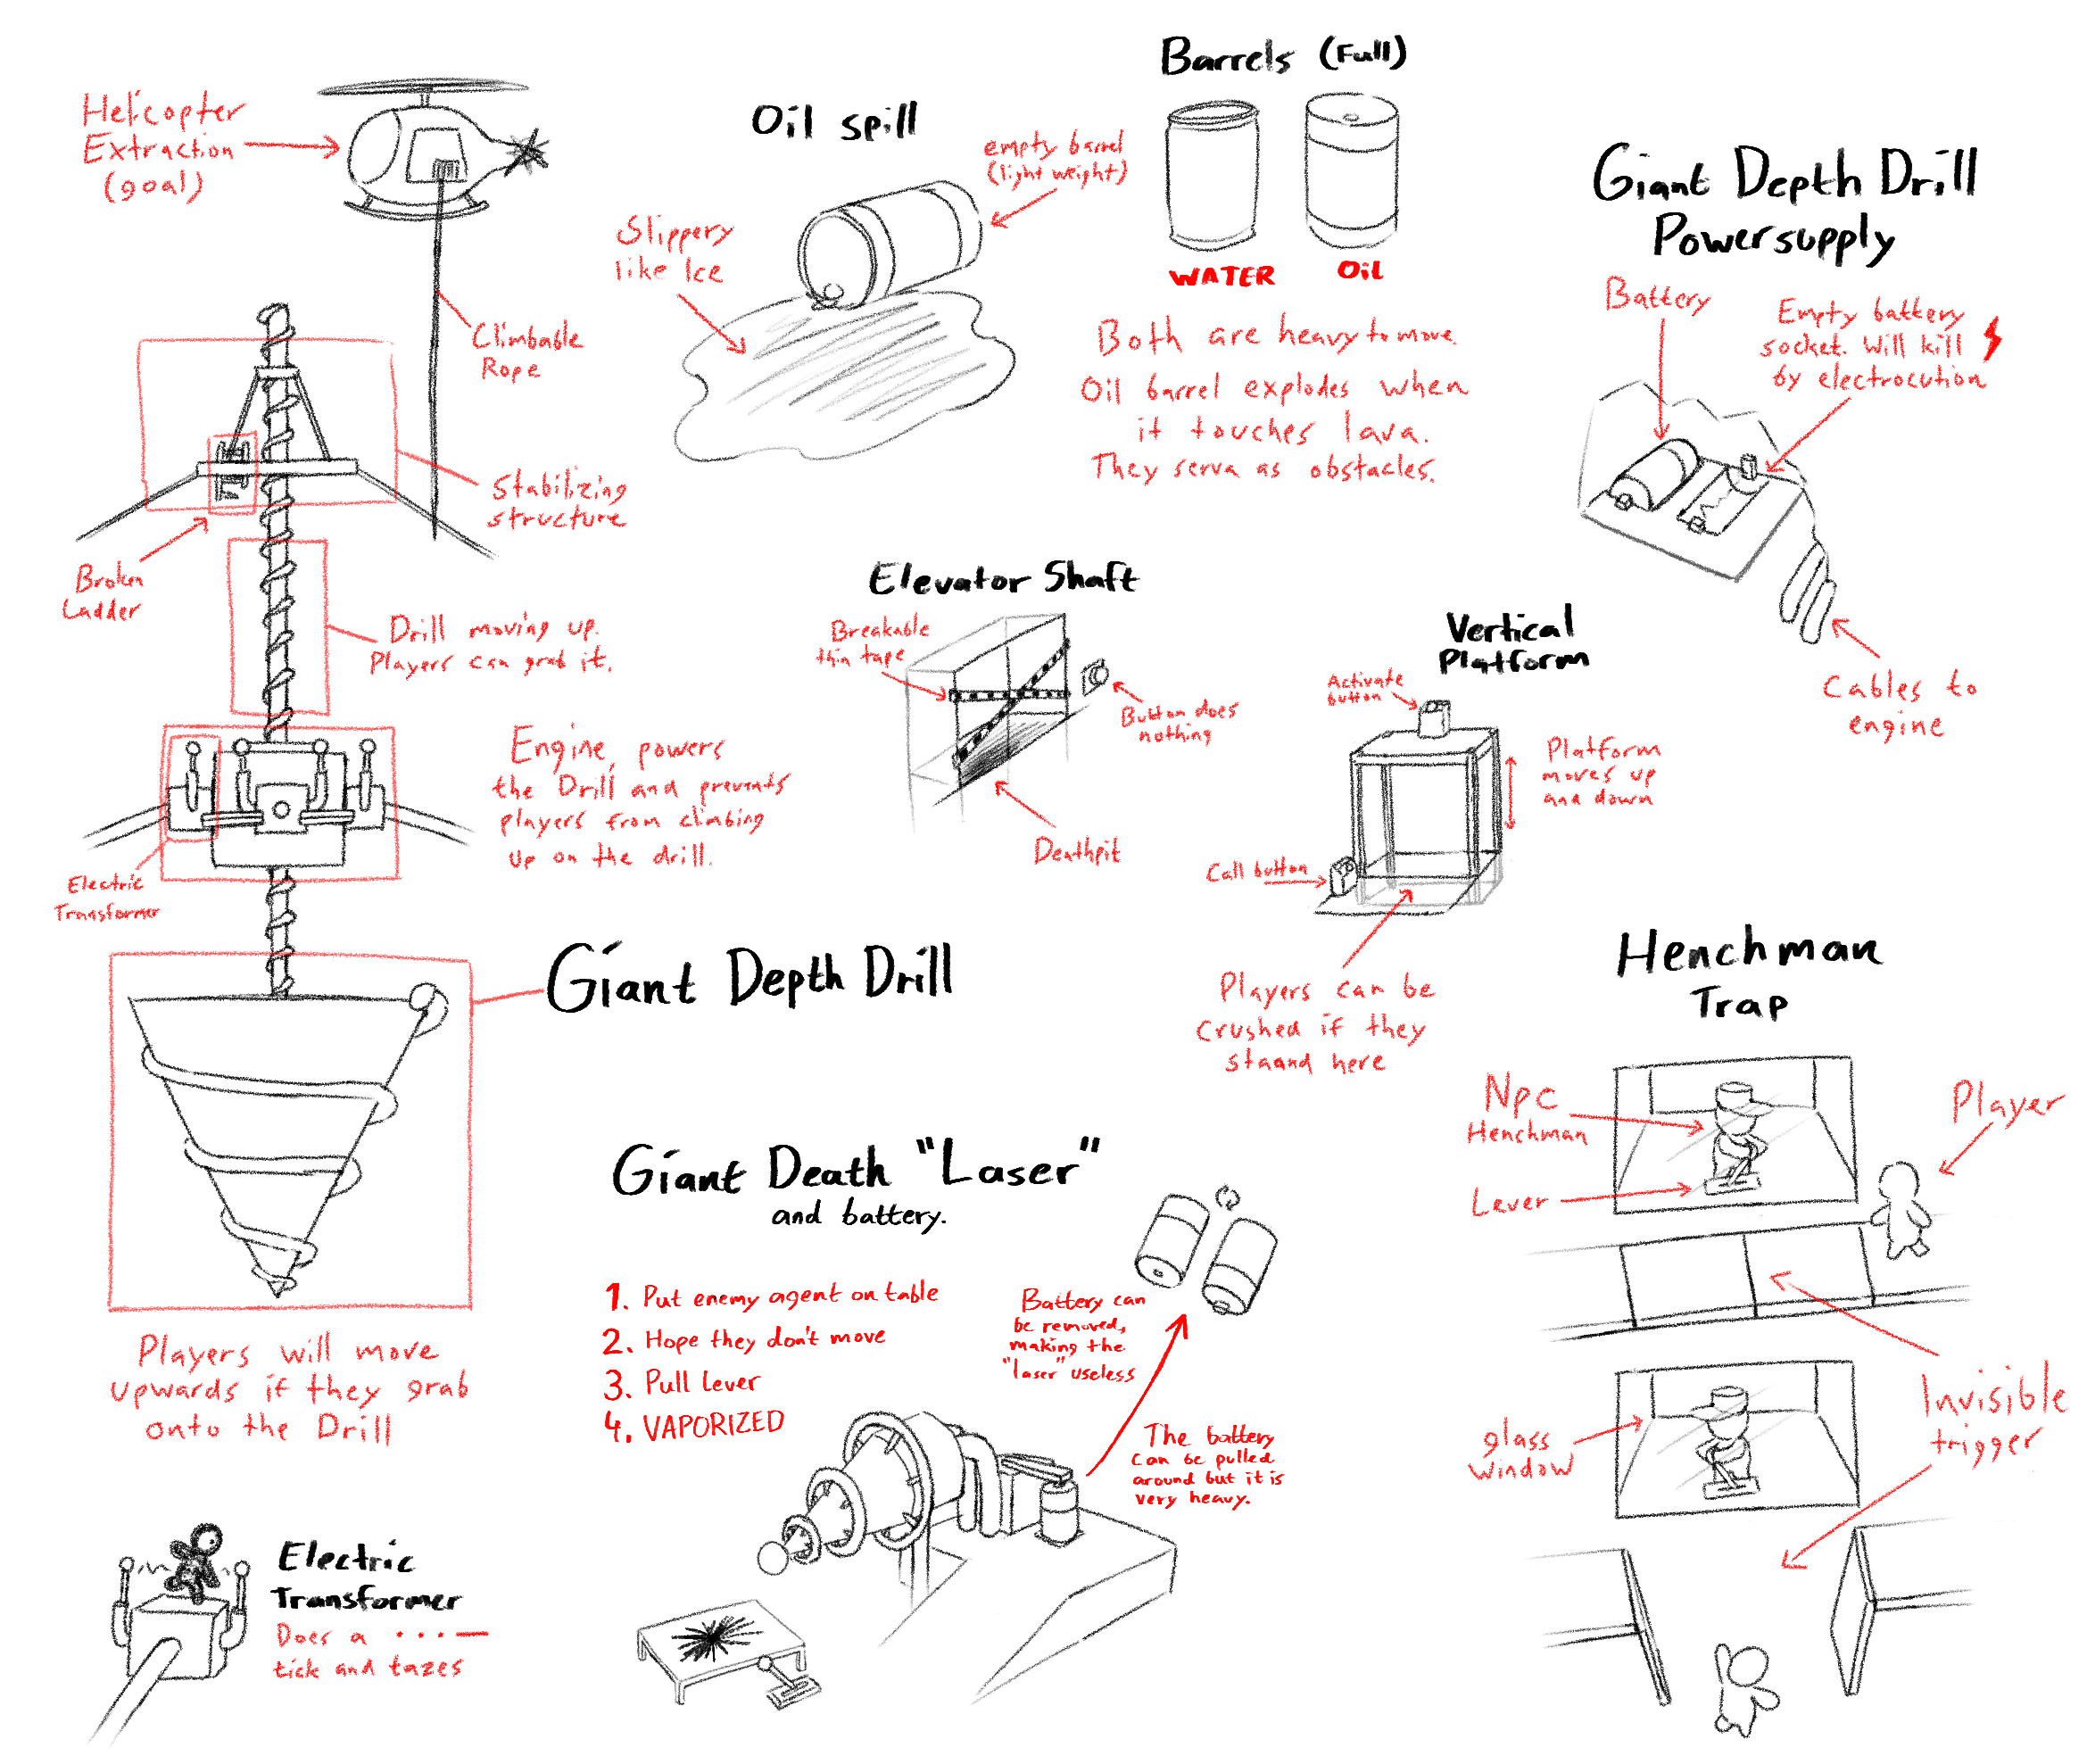 Helicopter
Extraction
(goal)
Climbable
Rope
Stabilizing
structure
Broken
Ladder
Drill moving up.
Players can grab it.
Engine, powers
the Drill and prevents
players from climbing
up on the drill.
Electric
Transformer
Giant Depth Drill
Players will move
upwards if they grab
onto the Drill
Electric
Transformer
Does a ...—
tick and tazes
Oil spill
empty barrel
(light weight)
Slippery
like Ice
Barrels (Full)
WATER
Oil
Both are heavy to move.
Oil barrel explodes when
it touches lava.
They serva as obstacles.
Giant Depth Drill
Powersupply
Battery
Empty battery
socket. Will kill
by electrocution
Cables to
engine
Elevator Shaft
Breakable
thin tape
Button does
nothing
Deathpit
Vertical
Platform
Activate
button
Platform
moves up
and down
Call button
Players can be
crushed if they
staand here
Giant Death "Laser"
and battery.
1. Put enemy agent on table
2. Hope they don't move
3. Pull Lever
4. VAPORIZED
Battery can
be removed,
making the
"laser" useless
The battery
can be pulled
around but it is
very heavy.
Henchman
Trap
Npc
Henchman
Lever
Player
Invisible
trigger
glass
window